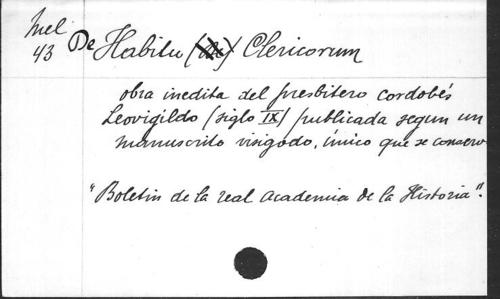 Mel
43
De Habitu (de) Clericorum
obra inedita del presbitero cordobés
Leovigildo (siglo IX) publicada segun un
manuscrito visigodo, único que se conserv
"Boletin de la real academia de la Historia".